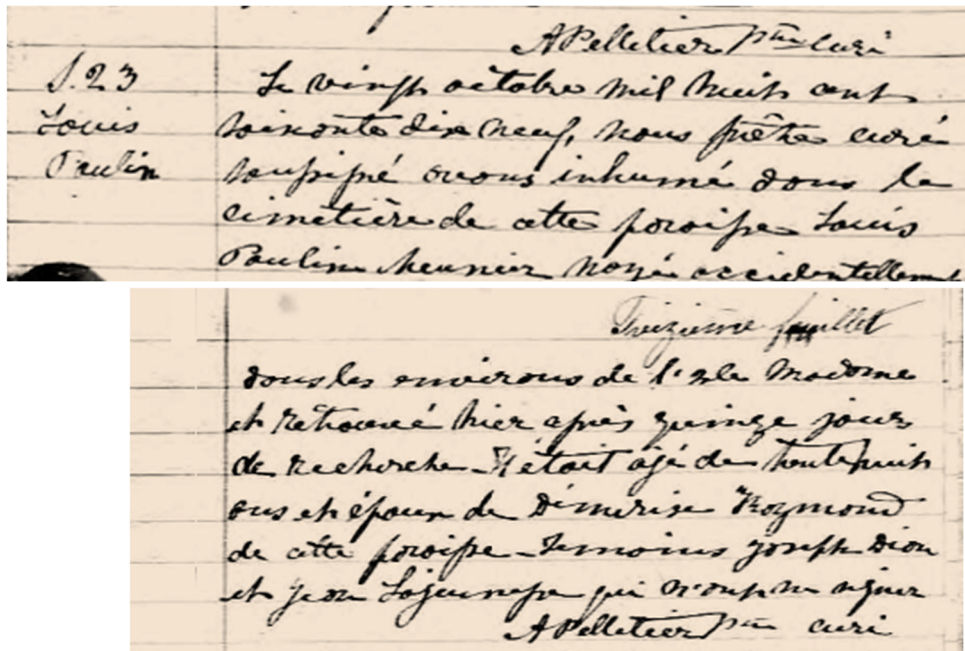 A Pelletier Ptre curé
S. 23
Louis
Paulin
Le vingt octobre mil huit cent
soixante dix neuf, nous prêtre curé
soussigné avons inhumé dans le
cimetière de cette paroisse Louis
Paulin Meunier noyé accidentellement
Treizième feuillet
dans les environs de l'Isle Madame
et retrouvé hier après quinze jours
de recherche. Il était âgé de trente huit
ans et époux de Dimerise Raymond
de cette paroisse. Témoins Joseph Dion
et Jean Lajeunesse qui n'ont su signer
A Pelletier Ptre curé